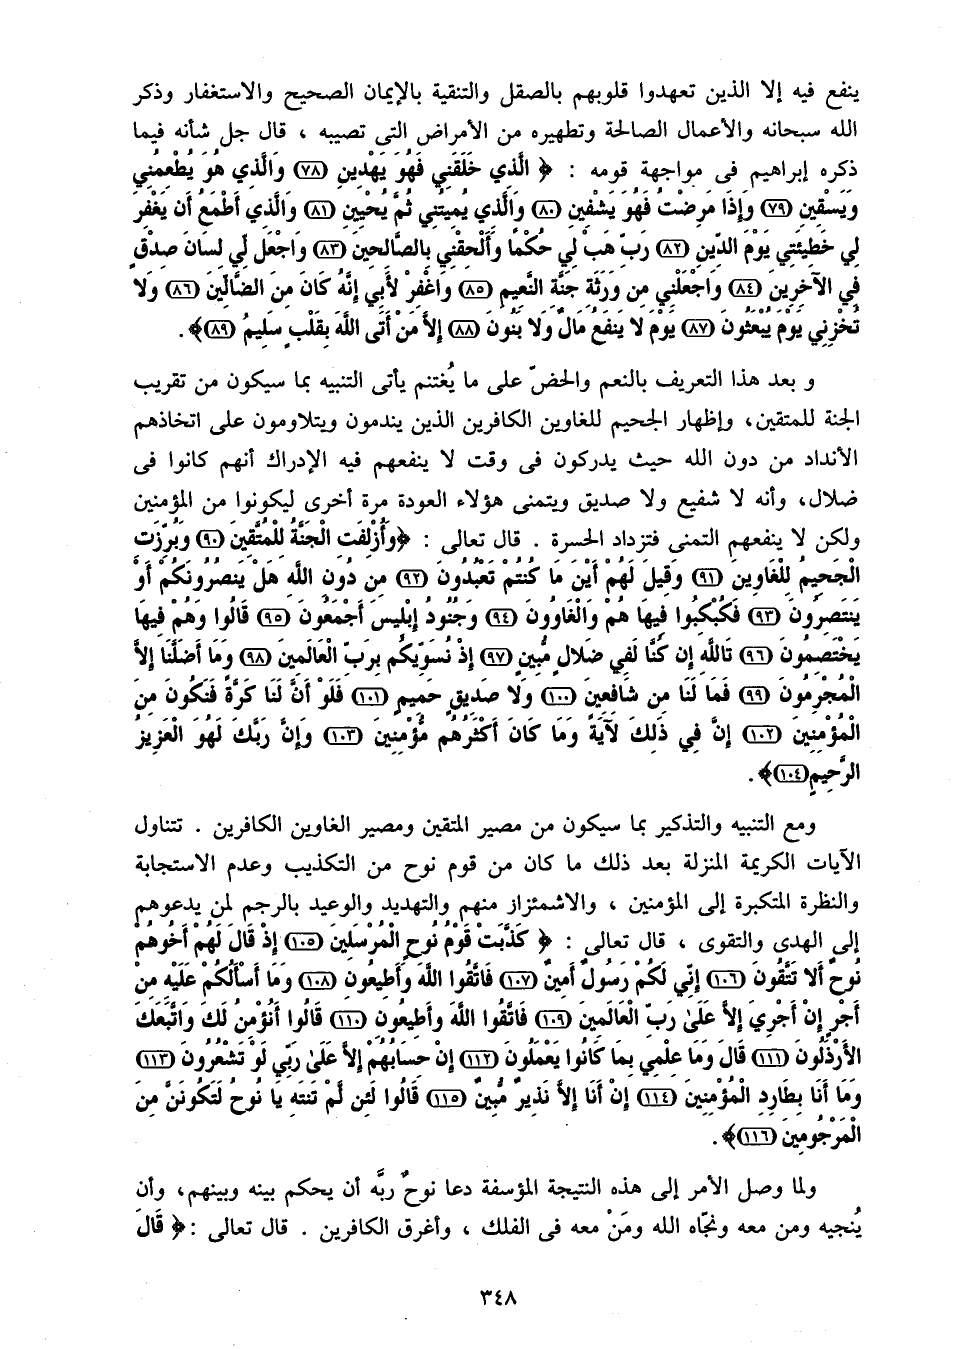 ينفع فيه إلا الذين تعهدوا قلوبهم بالصقل والتنقية بالإيمان الصحيح والاستغفار وذكر
الله سبحانه والأعمال الصالحة وتطهيره من الأمراض التى تصيبه ، قال جل شأنه فيما
ذكره إبراهيم فى مواجهة قومه : ﴿ الَّذِي خَلَقَنِي فَهُوَ يَهْدِينِ (٧٨) وَالَّذِي هُوَ يُطْعِمُنِي
وَيَسْقِينِ (٧٩) وَإِذَا مَرِضْتُ فَهُوَ يَشْفِينِ (٨٠) وَالَّذِي يُمِيتُنِي ثُمَّ يُحْيِينِ (٨١) وَالَّذِي أَطْمَعُ أَن يَغْفِرَ
لِي خَطِيئَتِي يَوْمَ الدِّينِ (٨٢) رَبِّ هَبْ لِي حُكْمًا وَأَلْحِقْنِي بِالصَّالِحِينَ (٨٣) وَاجْعَل لِّي لِسَانَ صِدْقٍ
فِي الآخِرِينَ (٨٤) وَاجْعَلْنِي مِن وَرَثَةِ جَنَّةِ النَّعِيمِ (٨٥) وَاغْفِرْ لأَبِي إِنَّهُ كَانَ مِنَ الضَّالِّينَ (٨٦) وَلا
تُخْزِنِي يَوْمَ يُبْعَثُونَ (٨٧) يَوْمَ لا يَنفَعُ مَالٌ وَلا بَنُونَ (٨٨) إِلاَّ مَنْ أَتَى اللَّهَ بِقَلْبٍ سَلِيمٍ (٨٩)﴾ .
و بعد هذا التعريف بالنعم والحضّ على ما يُغتنم يأتى التنبيه بما سيكون من تقريب
الجنة للمتقين، وإظهار الجحيم للغاوين الكافرين الذين يندمون ويتلاومون على اتخاذهم
الأنداد من دون الله حيث يدركون فى وقت لا ينفعهم فيه الإدراك أنهم كانوا فى
ضلال، وأنه لا شفيع ولا صديق ويتمنى هؤلاء العودة مرة أخرى ليكونوا من المؤمنين
ولكن لا ينفعهم التمنى فتزداد الحسرة . قال تعالى : ﴿وَأُزْلِفَتِ الْجَنَّةُ لِلْمُتَّقِينَ (٩٠) وَبُرِّزَتِ
الْجَحِيمُ لِلْغَاوِينَ (٩١) وَقِيلَ لَهُمْ أَيْنَ مَا كُنتُمْ تَعْبُدُونَ (٩٢) مِن دُونِ اللَّهِ هَلْ يَنصُرُونَكُمْ أَوْ
يَنتَصِرُونَ (٩٣) فَكُبْكِبُوا فِيهَا هُمْ وَالْغَاوُونَ (٩٤) وَجُنُودُ إِبْلِيسَ أَجْمَعُونَ (٩٥) قَالُوا وَهُمْ فِيهَا
يَخْتَصِمُونَ (٩٦) تَاللَّهِ إِن كُنَّا لَفِي ضَلالٍ مُّبِينٍ (٩٧) إِذْ نُسَوِّيكُم بِرَبِّ الْعَالَمِينَ (٩٨) وَمَا أَضَلَّنَا إِلاَّ
الْمُجْرِمُونَ (٩٩) فَمَا لَنَا مِن شَافِعِينَ (١٠٠) وَلا صَدِيقٍ حَمِيمٍ (١٠١) فَلَوْ أَنَّ لَنَا كَرَّةً فَنَكُونَ مِنَ
الْمُؤْمِنِينَ (١٠٢) إِنَّ فِي ذَلِكَ لآيَةً وَمَا كَانَ أَكْثَرُهُم مُّؤْمِنِينَ (١٠٣) وَإِنَّ رَبَّكَ لَهُوَ الْعَزِيزُ
الرَّحِيمُ (١٠٤)﴾ .
ومع التنبيه والتذكير بما سيكون من مصير المتقين ومصير الغاوين الكافرين . تتناول
الآيات الكريمة المنزلة بعد ذلك ما كان من قوم نوح من التكذيب وعدم الاستجابة
والنظرة المتكبرة إلى المؤمنين ، والاشمئزاز منهم والتهديد والوعيد بالرجم لمن يدعوهم
إلى الهدى والتقوى ، قال تعالى : ﴿ كَذَّبَتْ قَوْمُ نُوحٍ الْمُرْسَلِينَ (١٠٥) إِذْ قَالَ لَهُمْ أَخُوهُمْ
نُوحٌ أَلا تَتَّقُونَ (١٠٦) إِنِّي لَكُمْ رَسُولٌ أَمِينٌ (١٠٧) فَاتَّقُوا اللَّهَ وَأَطِيعُونِ (١٠٨) وَمَا أَسْأَلُكُمْ عَلَيْهِ مِنْ
أَجْرٍ إِنْ أَجْرِيَ إِلاَّ عَلَى رَبِّ الْعَالَمِينَ (١٠٩) فَاتَّقُوا اللَّهَ وَأَطِيعُونِ (١١٠) قَالُوا أَنُؤْمِنُ لَكَ وَاتَّبَعَكَ
الأَرْذَلُونَ (١١١) قَالَ وَمَا عِلْمِي بِمَا كَانُوا يَعْمَلُونَ (١١٢) إِنْ حِسَابُهُمْ إِلاَّ عَلَى رَبِّي لَوْ تَشْعُرُونَ (١١٣)
وَمَا أَنَا بِطَارِدِ الْمُؤْمِنِينَ (١١٤) إِنْ أَنَا إِلاَّ نَذِيرٌ مُّبِينٌ (١١٥) قَالُوا لَئِن لَّمْ تَنتَهِ يَا نُوحُ لَتَكُونَنَّ مِنَ
الْمَرْجُومِينَ (١١٦)﴾ .
ولما وصل الأمر إلى هذه النتيجة المؤسفة دعا نوحٌ ربَّه أن يحكم بينه وبينهم، وأن
يُنجيه ومن معه ونجّاه الله ومَنْ معه فى الفلك ، وأغرق الكافرين . قال تعالى :﴿ قَالَ
٣٤٨